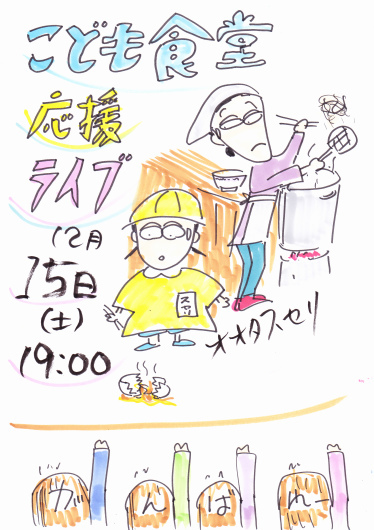 こども食堂
応援
ライブ
12月
15日
(土)
19:00
スセリ
オオタスセリ
がんばれー